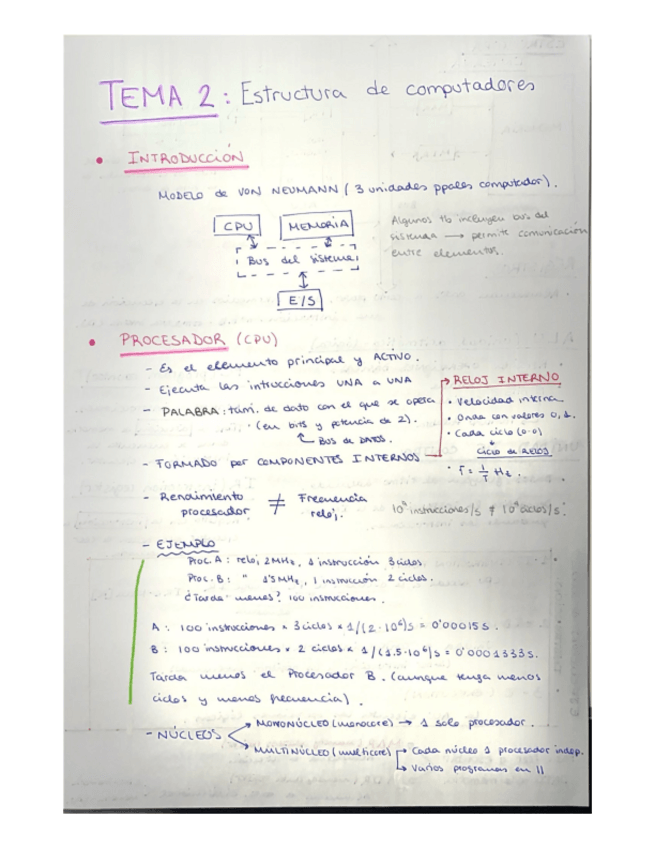 TEMA 2 : Estructura de computadores
• INTRODUCCIÓN
MODELO de VON NEUMANN ( 3 unidades ppales computador).
CPU
MEMORIA
Bus del sistema
E/S
Algunos tb incluyen bus del
sistema → permite comunicación
entre elementos.
• PROCESADOR (CPU)
- Es el elemento principal y ACTIVO.
- Ejecuta las intrucciones UNA a UNA
- PALABRA : tam. de dato con el que se opera
• (en bits y potencia de 2).
Bus de DATOS.
- TORMADO por COMPONENTES INTERNOS
→ RELOJ INTERNO
• Velocidad interna
• Onda con valores 0, 1.
• Cada ciclo (0-0)
ciclo de RELOJ
• f = 1/T Hz.
- Rendimiento procesador ≠ Frecuencia reloj.
instrucciones/s ≠ ciclos/s.
- EJEMPLO
Proc. A : reloj 2MHz, 1 instrucción 3 ciclos.
Proc. B : " 1'5 MHz, 1 instrucción 2 ciclos.
¿Tarda menos? 100 instrucciones.
A : 100 instrucciones × 3 ciclos × 1/(2·10⁶)s = 0'00015 s.
B : 100 instrucciones × 2 ciclos × 1/(1.5·10⁶)s = 0'0001333s.
Tarda menos el Procesador B. (aunque tenga menos
ciclos y menos frecuencia).
- NÚCLEOS
→ MONONÚCLEO (monocore) → 1 solo procesador.
→ MULTINÚCLEO (multicore)
→ Cada núcleo 1 procesador indep.
→ Varios programas en ||